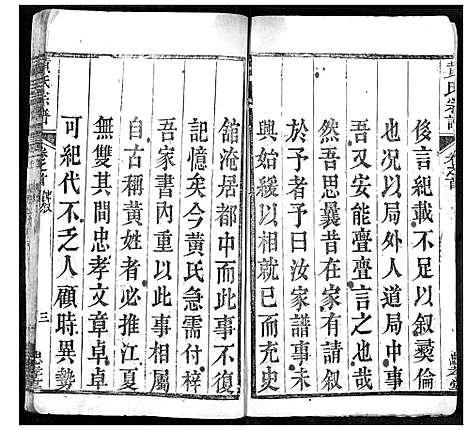 黃氏宗譜
卷之首
後言紀載不足以叙彞倫
也况以局外人道局中事
吾又安能亹亹言之也雖
然吾思曩昔在家有請叙
於予者予曰汝家譜事未
興始緩以相就已而充史
館淹居都中而此事不復
記憶矣今黃氏急需付梓
吾家書來重以此事相屬
自古稱黃姓者必推江夏
無雙其間忠孝文章卓卓
可紀代不乏人顧時異勢
黃氏宗譜
卷之首
三